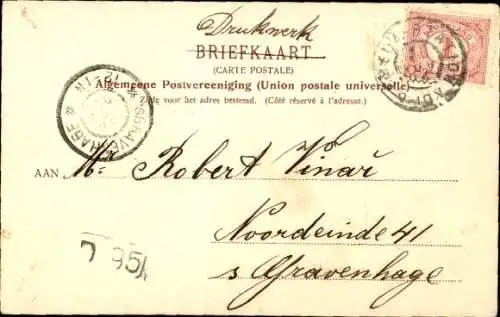 Drukwerk
BRIEFKAART
(CARTE POSTALE)
Algemeene Postvereeniging (Union postale universelle)
Zijde voor het adres bestemd. (Côté réservé à l'adresse.)
'SGRAVENHAGE
AAN Mr. Robert Vinař
Noordeinde 41
s Gravenhage